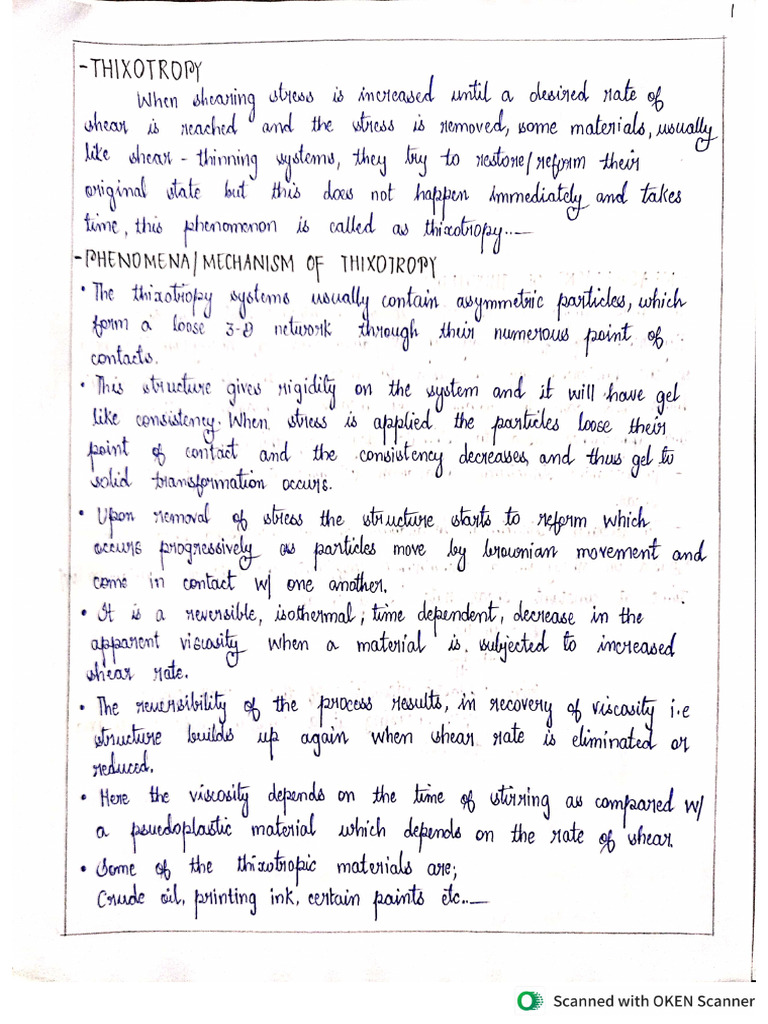 1
-THIXOTROPY
When shearing stress is increased until a desired rate of
shear is reached and the stress is removed, some materials, usually
like shear - thinning systems, they try to restore/reform their
original state but this does not happen immediately and takes
time, this phenomenon is called as thixotropy..—
-PHENOMENA/MECHANISM OF THIXOTROPY
• The thixotropy systems usually contain asymmetric particles, which
form a loose 3-D network through their numerous point of
contacts.
• This structure gives rigidity on the system and it will have gel
like consistency. When stress is applied the particles loose their
point of contact and the consistency decreases, and thus gel to
solid transformation occurs.
• Upon removal of stress the structure starts to reform which
occurs progressively as particles move by brownian movement and
come in contact w/ one another.
• It is a reversible, isothermal, time dependent, decrease in the
apparent viscosity when a material is subjected to increased
shear rate.
• The reversibility of the process results, in recovery of viscosity i.e
structure builds up again when shear rate is eliminated or
reduced.
• Here the viscosity depends on the time of stirring as compared w/
a psuedoplastic material which depends on the rate of shear.
• Some of the thixotropic materials are;
Crude oil, printing ink, certain paints etc..—
Scanned with OKEN Scanner